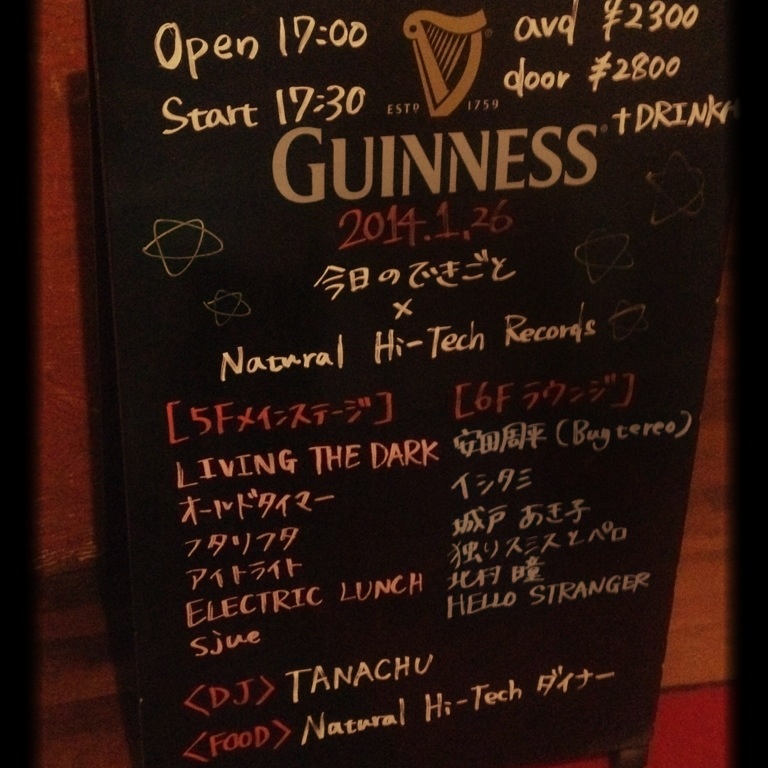 Open 17:00
Start 17:30
ESTD 1759
avd ¥2300
door ¥2800
+DRINK
GUINNESS
2014.1.26
今日のできごと
×
Natural Hi-Tech Records
[5Fメインステージ]
LIVING THE DARK
オールドタイマー
フタリフタ
アイトライト
ELECTRIC LUNCH
Sjue
[6Fラウンジ]
安田周平(Bugtereo)
イシタミ
城戸 あき子
独りスミスとペロ
北村 瞳
HELLO STRANGER
<DJ> TANACHU
<FOOD> Natural Hi-Tech ダイナー